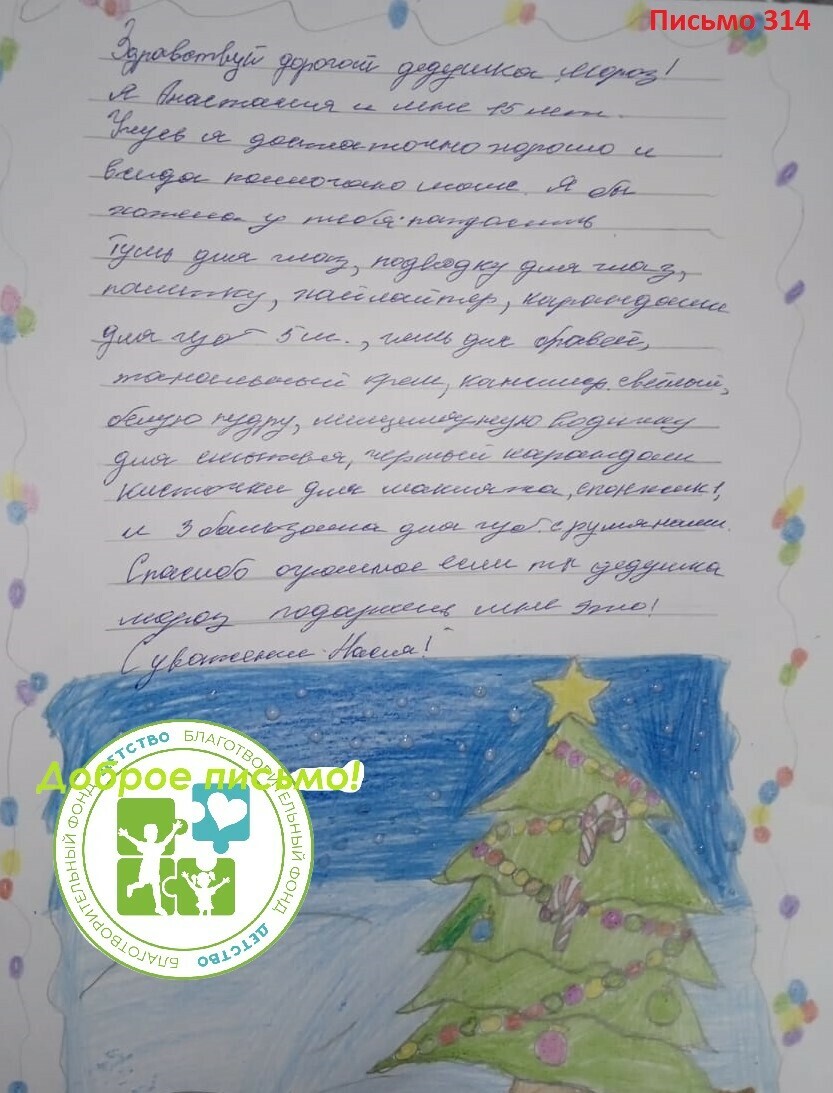 Письмо 314
Здравствуй дорогой дедушка мороз!
Я Анастасия и мне 15 лет.
Учусь я достаточно хорошо и
всегда помогаю маме. Я бы
хотела у тебя попросить
Тушь для глаз, подводку для глаз,
палитку, хайлайтер, карандаши
для губ 5 ш., гель для бровей,
тональный крем, консилер светлый,
белую пудру, мицилярную водичку
для снятия, черный карандаш
кисточки для макияжа, спонжик,
и 3 бальзама для губ с румянами.
Спасибо огромное если ты дедушка
мороз подаришь мне это!
С уважением Настя!
Доброе письмо!
БЛАГОТВОРИТЕЛЬНЫЙ ФОНД ДЕТСТВО
БЛАГОТВОРИТЕЛЬНЫЙ ФОНД ДЕТСТВО